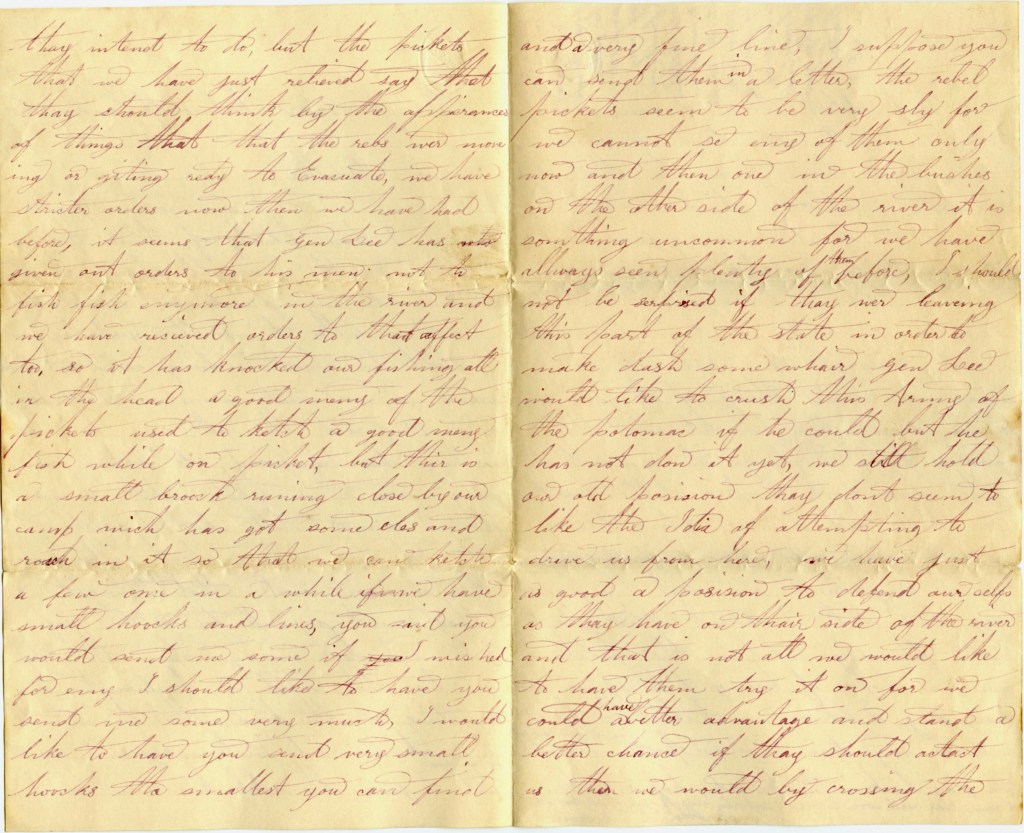 thay intend to do, but the pickets
that we have just relieved say that
thay should think by the appirances
of things that that the rebs wer mov
ing or giting redy to Evacuate, we have
stricter orders now then we have had
before, it seems that Gen Lee has
given out orders to his men not to
fish fish enymore in the river and
we have recieved orders to that affect
too, so it has knocked our fishing all
in the head a good meny of the
pickets used to ketch a good meny
fish while on picket, but thier is
a small broock runing close by our
camp wich has got some eles and
roach in it so that we can ketch
a few one in a while if we have
small hoocks and lines, you said you
would send me some if you I wished
for eny I should like to have you
send me some very much, I would
like to have you send very small
hoocks the smallest you can find
and a very fine line, I suppose you
can send them in a letter, the rebel
pickets seem to be very sly for
we cannot se eny of them only
now and then one in the bushes
on the other side of the river it is
somthing uncommon for we have
allways seen plenty of them before, I should
not be serprised if thay wer leaveing
this part of the state in order to
make dash some whair Gen Lee
would like to crush this Army of
the potomac if he could but he
has not don it yet, we still hold
our old posision thay dont seem to
like the Idia of attempting to
drive us from here, we have just
as good a posision to defend our selfs
as thay have on thair side of the river
and that is not all we would like
to have them try it on for we
could have a better advantage and stand a
better chance if thay should actact
us then we would by crossing the